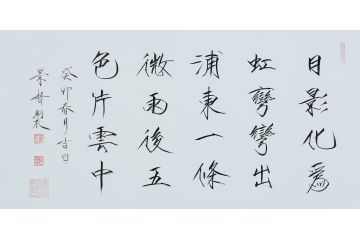 日影化為
虹彎彎出
浦東一條
微雨後五
色片雲中
癸卯春月吉日